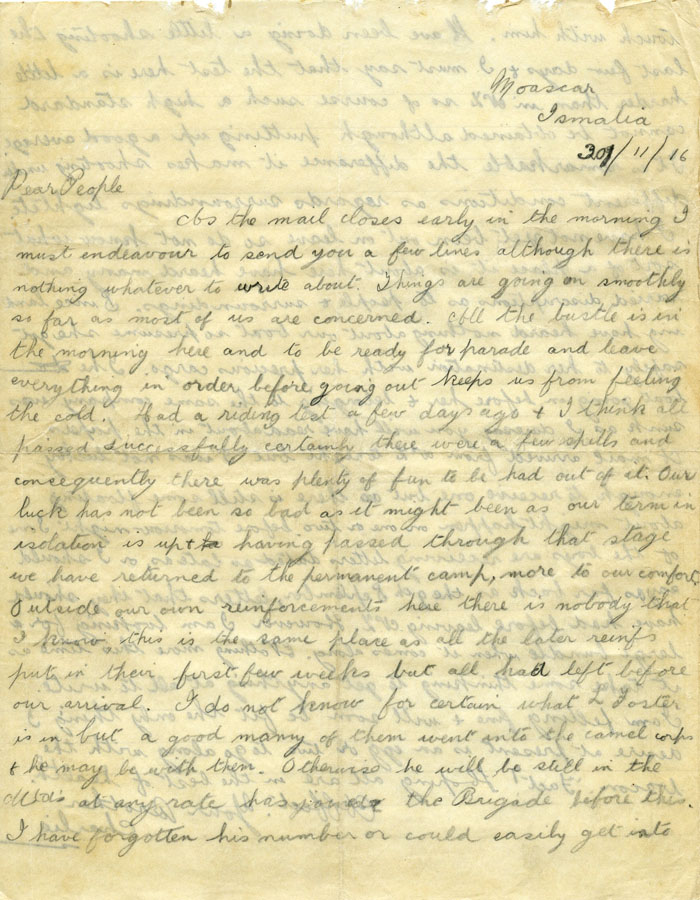 Moascar
Ismalia
30/11/16
Dear People
As the mail closes early in the morning I
must endeavour to send you a few lines although there is
nothing whatever to write about. Things are going on smoothly
so far as most of us are concerned. All the bustle is in
the morning here and to be ready for parade and leave
everything in order before going out keeps us from feeling
the cold. Had a riding test a few days ago & I think all
passed successfully certainly there were a few spills and
consequently there was plenty of fun to be had out of it. Our
luck has not been so bad as it might been as our term in
isolation is up & having passed through that stage
we have returned to the permanent camp, more to our comfort.
Outside our own reinforcements here there is nobody that
I know this is the same place as all the later reinfs
put in their first few weeks but all had left before
our arrival. I do not know for certain what L Foster
is in but a good many of them went into the camel corps
& he may be with them. Otherwise he will be still in the
at any rate has joined the Brigade before this.
I have forgotten his number or could easily get into